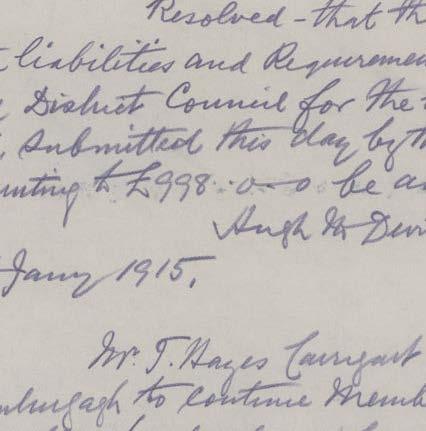 Resolved - that th
liabilities and Requiremen
District Council for the
submitted this day by th
unting to £998..0-0 be a
Hugh Mc Devi
Jany 1915.
Mr. T. Hayes Carrigart
to continue Memb